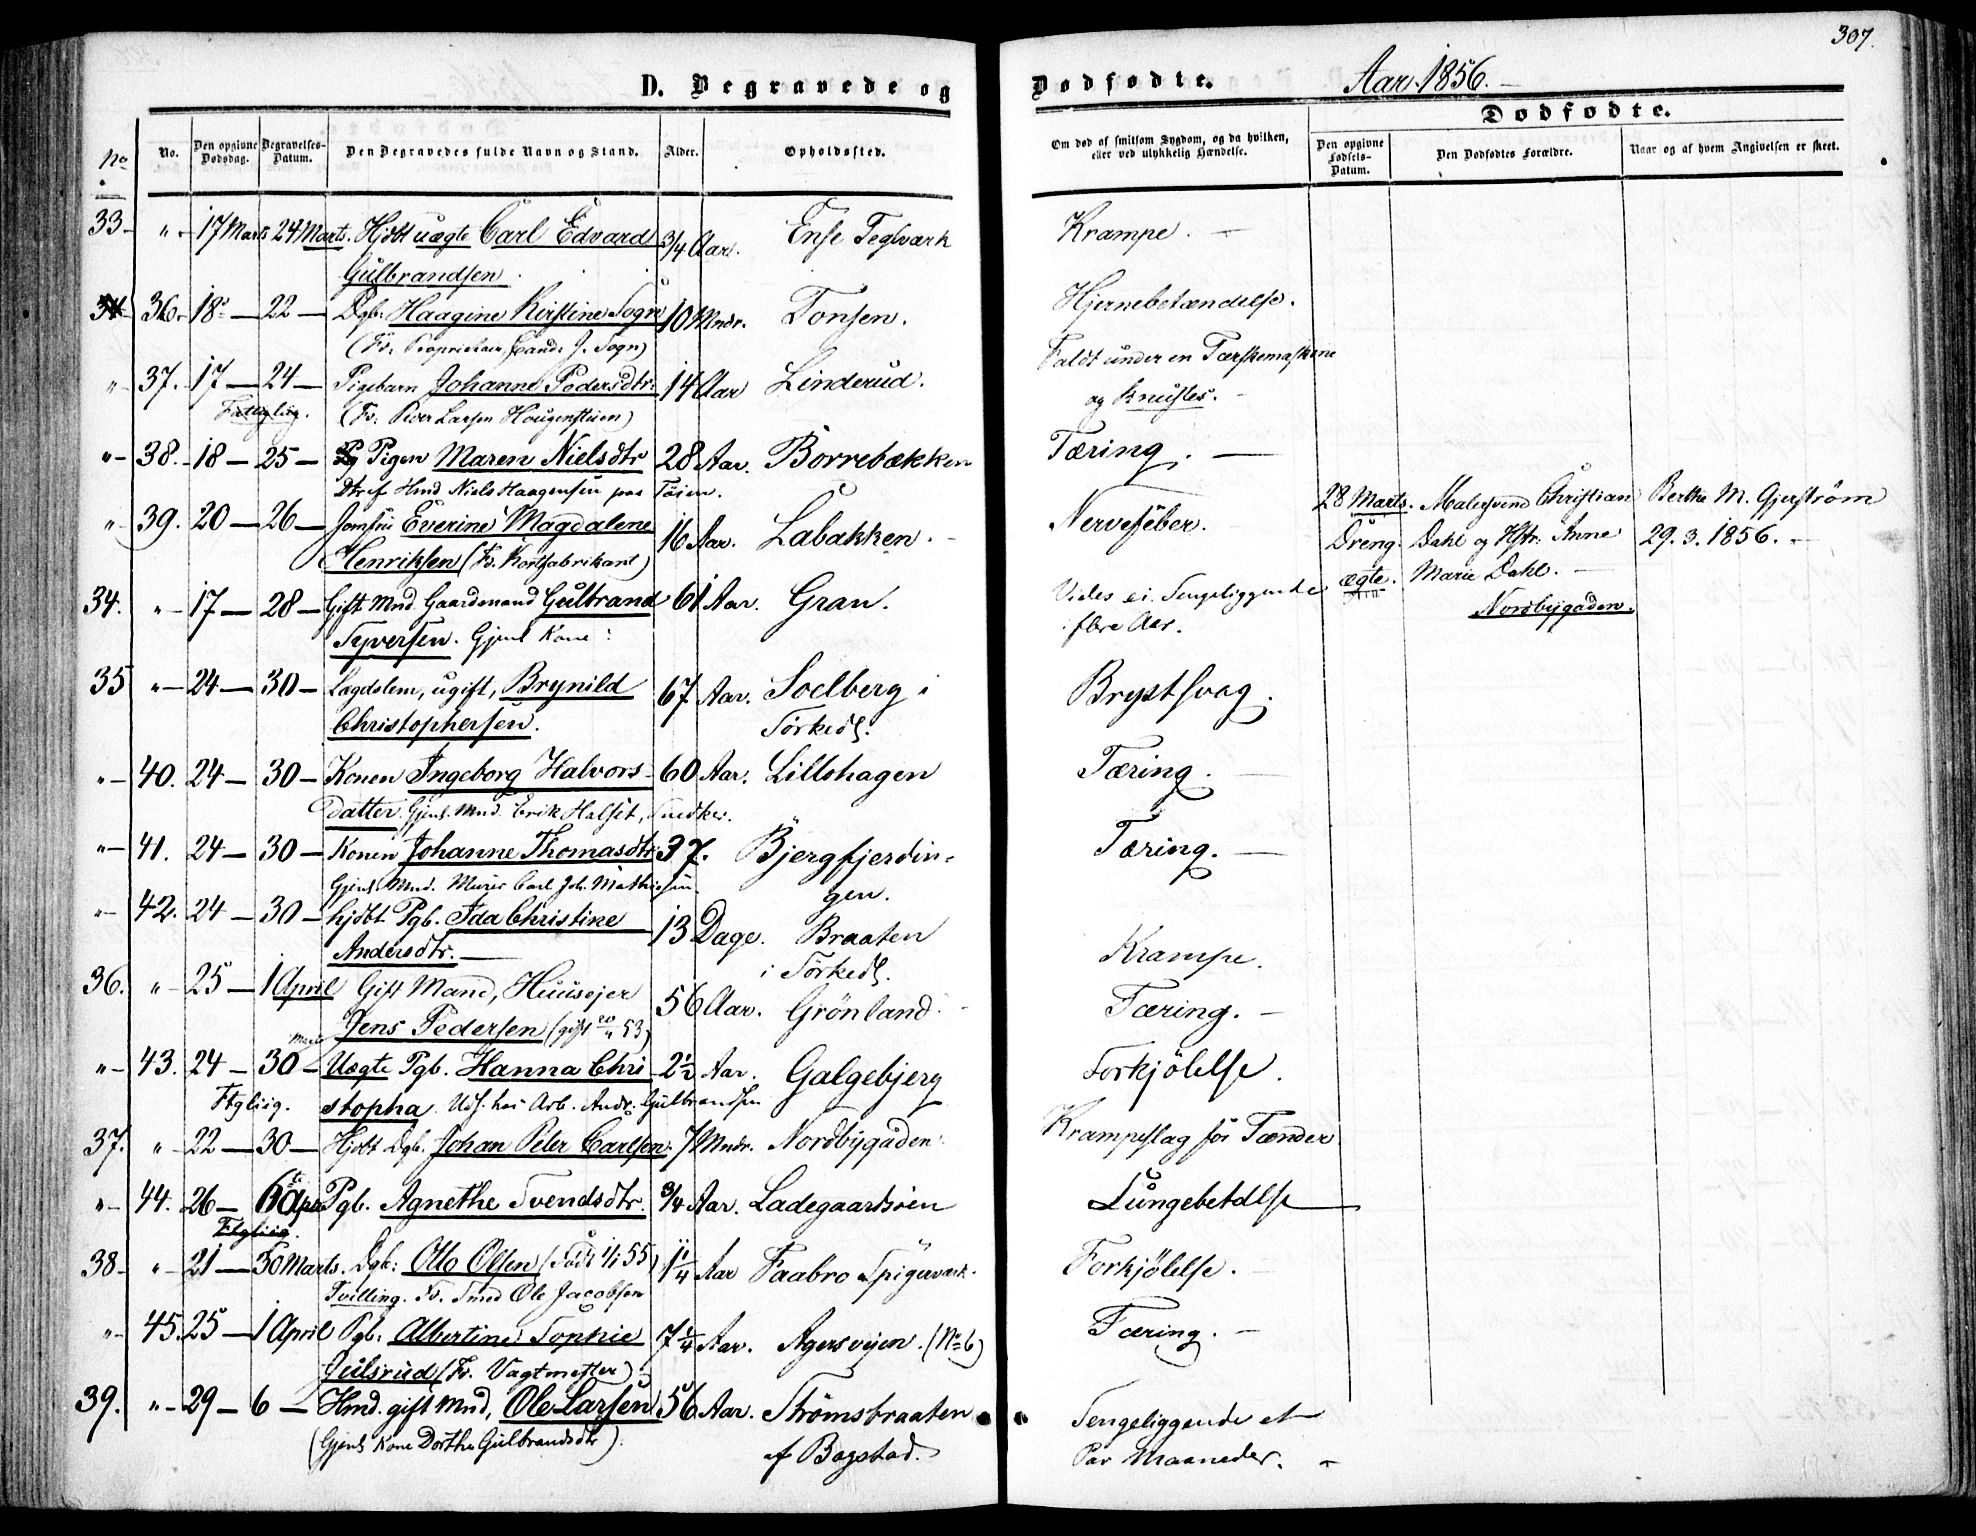 307.
D. Begravede og Dødfødte. Aar 1856.
Dødfødte.
No
No. Den opgivne Dødsdag. Begravelses-Datum. Den Begravedes fulde Navn og Stand. Alder. Opholdssted.
Om død af smitsom Sygdom, og da hvilken, eller ved ulykkelig Hændelse. Den opgivne Fødsels-Datum. Den Dødfødtes Forældre. Naar og af hvem Angivelsen er skeet.
33 " 17 Marts 24 Marts. Hjdbt uægte Carl Edvard 3/4 Aar. Ense Teglværk Krampe.
Gulbrandsen.
36. 18 22 Dgb. Haagine Kirstine Sogn 10 Mndr. Tonsen. Hjernebetændelse.
(Fr. Proprietair, Cand. J. Sogn)
" 37. 17 24 Pigebarn Johanne Pedersdtr. 14 Aar Linderud. Faldt under en Tærskemaskine
Fattiglig. (Fr. Peder Larsen Hougenstuen) og knustes.
" 38. 18 25 Pigen Maren Nielsdtr 28 Aar. Borrebækken Tæring.
Dtr af Hmd Niels Haagensen paa Töien.
" 39. 20 26 Jomfru Everine Magdalene 16 Aar. Labakken. Nervefeber.
Henriksen (Fr. Kortfabrikant)
28 Marts. Malersvend Christian Bertha M. Gjerström
Dreng. Dahl og Hstr. Anne 29.3.1856.
ægte. Marie Dahl.
Nordbygaden.
34. " 17 28 Gift Mnd Gaardmand Gulbrand 61 Aar. Gran. Vides ei. Sengeliggende
Syversen. Gjenl. Kone i flere Aar.
35 " 24 30 Lægdslem, ugift, Brynild 67 Aar. Soelberg i Brystsvag.
Christophersen. Sörkedl.
" 40. 24 30 Konen Ingeborg Halvors- 60 Aar. Lillohagen Tæring.
datter. Gjenl. Mnd. Erik Halset, Snedker.
" 41. 24 30 Konen Johanne Thomasdtr 37. Bjergfjerdin- Tæring.
Gjenl. Mnd. Murer Carl Joh. Mathisen. gen.
" 42. 24 30 hjdbt Pgb. Ida Christine 13 Dage. Braaten Krampe.
Andersdtr. i Sörkedl.
36. " 25 1 April Gift Mand, Huusejer 56 Aar. Grönland. Tæring.
Jens Pedersen (gift 53)
" 43. 24 30 Marts Uægte Pgb. Hanna Chri 2 1/2 Aar. Galgebjerg Forkjölelse.
Ftglig. stopha. Uds. hos Arb. Andr. Gulbrandsen
37. " 22 30 Hjdbt Dgb. Johan Peter Carlsen. 7 Mndr. Nordbygaden. Krampeslag för Tænder
" 44. 26 6 Apr Pgb. Agnethe Svendsdtr. 3/4 Aar. Ladegaardsöen Lungebetdlse
Ftglig.
38 " 21 30 Marts. Dgb. Otto Olsen (Född 55) 1 1/4 Aar Faabro Spigerværk. Forkjölelse.
Tvilling. Fr. Smed Ole Jacobsen
" 45. 25 1 April Pgb. Albertine Sophie 7 1/4 Aar. Agersveien. (No 6) Tæring.
Gulsrud (Fr. Vagtmester)
39. " 29 6 Hmd. gift Mnd, Ole Larsen 56 Aar. Strömsbraaten Sengeliggende et
(Gjenl. Kone Dorthe Gulbrandsdtr). af Bogstad. Par Maaneder.